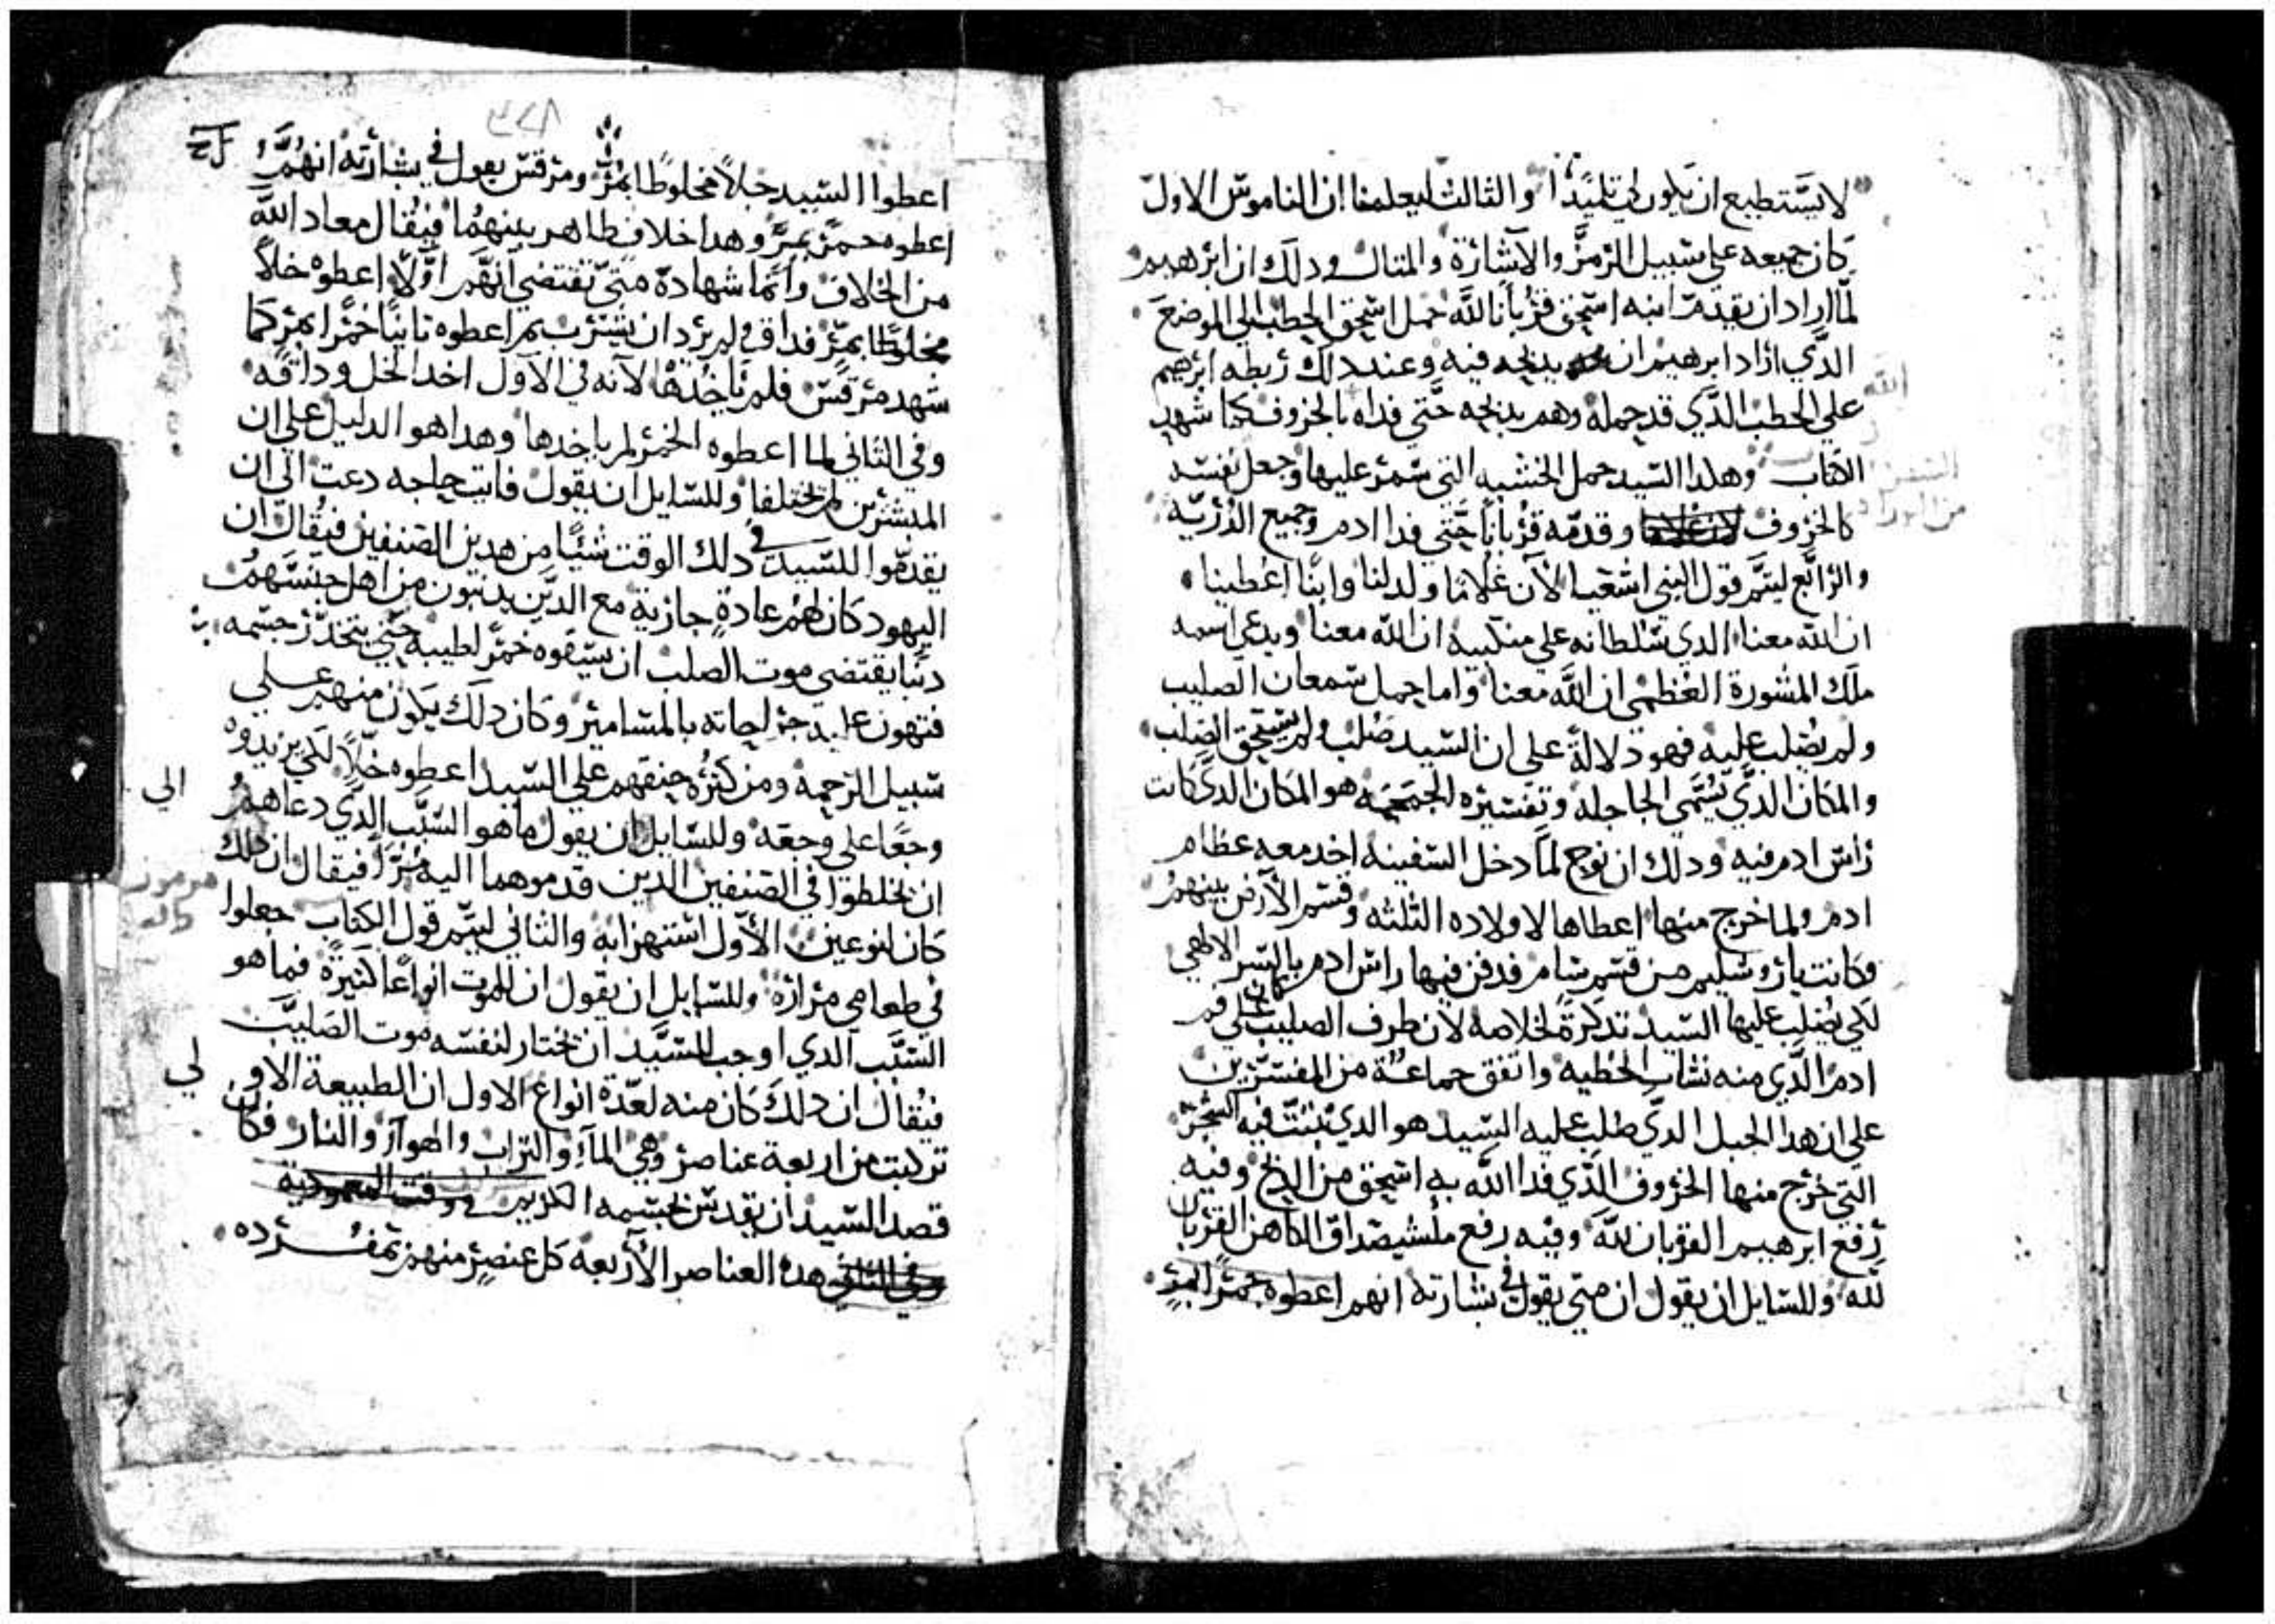 لا يستطيع ان يكون لي تلميدا والثالث ليعلمنا ان الناموس الاول
كان جميعه علي سبيل الرمز والاشارة والمتال ودلك ان ابرهيم
لما اراد ان يقدم ابنه اسحق قربانا لله حمل اسحق الحطب الي الموضع
الدي اراد ابرهيم ان يدبحه فيه وعند دلك ربطه ابرهيم
علي الحطب الدي قد حمله وهم بدبحه حتي فداه بالخروف كما شهد
الله
الكتاب وهكدا السيد حمل الخشبه التي سمر عليها وجعل نفسه
كالخروف وقدمه قربانا حتي فدا ادم وجميع الدريه
والرابع ليتم قول النبي اشعيا الان غلاما ولد لنا وابنا اعطينا
ان الله معنا الدي سلطانه علي منكبيه ان الله معنا ويدعي اسمه
ملك المشورة العظمي ان الله معنا واما حمل سمعان الصليب
ولم يصلب عليه فهو دلالة علي ان السيد صلب ولم يستحق الصلب
والمكان الدي يسمي الجاجلة وتفسيره الجمجمة هو المكان الدي كانت
راس ادم فيه ودلك ان نوح لما دخل السفينة اخد معه عظام
ادم ولما خرج منها اعطاها لاولاده الثلثه وقسم الارض بينهم
وكانت ياروشليم من قسم سام فدفن فيها راس ادم بالسر الالهي
لكي يصلب عليها السيد تدكرة لخلاصه لان طرف الصليب كان علي فم
ادم الدي منه نشات الخطيه واتفق جماعة من المفسرين
علي ان هدا الجبل الدي صلب عليه السيد هو الدي نبتت فيه الشجرة
التي خرج منها الخروف الدي فدا الله به اسحق من الدبح وفيه
رفع ابرهيم القربان لله وفيه رفع ملشيصداق الكاهن القربان
لله وللسايل ان يقول ان متي يقول في بشارته انهم اعطوه خمرا بمر
اعطوا السيد خلا مخلوطا بمر ومرقس يقول في بشارته انهم
اعطوه خمر بمر وهدا خلاف ظاهر بينهما فيقال معاد الله
من الخلاف وانما شهادة متي تقتضي انهم اولا اعطوه خلا
مخلوطا بمر فداق ولم يرد ان يشرب ثم اعطوه تانيا خمرا بمر كما
شهد مرقس فلم ياخدها لانه في الاول اخد الخل وداقه
وفي الثاني لما اعطوه الخمر لم ياخدها وهدا هو الدليل علي ان
المبشرين لم يختلفا وللسايل ان يقول فايت حاجه دعت الي ان
يقدموا للسيد في دلك الوقت شيا من هدين الصنفين فيقال ان
اليهود كان لهم عادة جارية مع الدين يدنبون من اهل جنسهم
دنبا يقتضي موت الصلب ان يسقوه خمر لطيبة حتي يتخدر جسمه
فتهون عليه جراحاته بالمسامير وكان دلك يكون منهم علي
سبيل الرحمة ومن كثرة حنقهم علي السيد اعطوه خلا لكي يزيدوه
وجعا علي وجعه وللسايل ان يقول ما هو السبب الدي دعاهم الي
ان يخلطوا في الصنفين الدين قدموهما اليه مرا فيقال ان دلك
كان لنوعين الاول استهزا به والثاني ليتم قول الكتاب جعلوا
في طعامي مرارة وللسايل ان يقول ان للموت انواعا كثيرة فما هو
السبب الدي اوجب للسيد ان يختار لنفسه موت الصليب
فيقال ان دلك كان منه لعدة انواع الاول ان الطبيعة الاولي
تركبت من اربعة عناصر وهي الماء والتراب والهوا والنار فكان
قصد السيد ان يقدس بجسمه الكريم وقت المعمودية
هده العناصر الاربعة كل عنصر منهم بمفرده